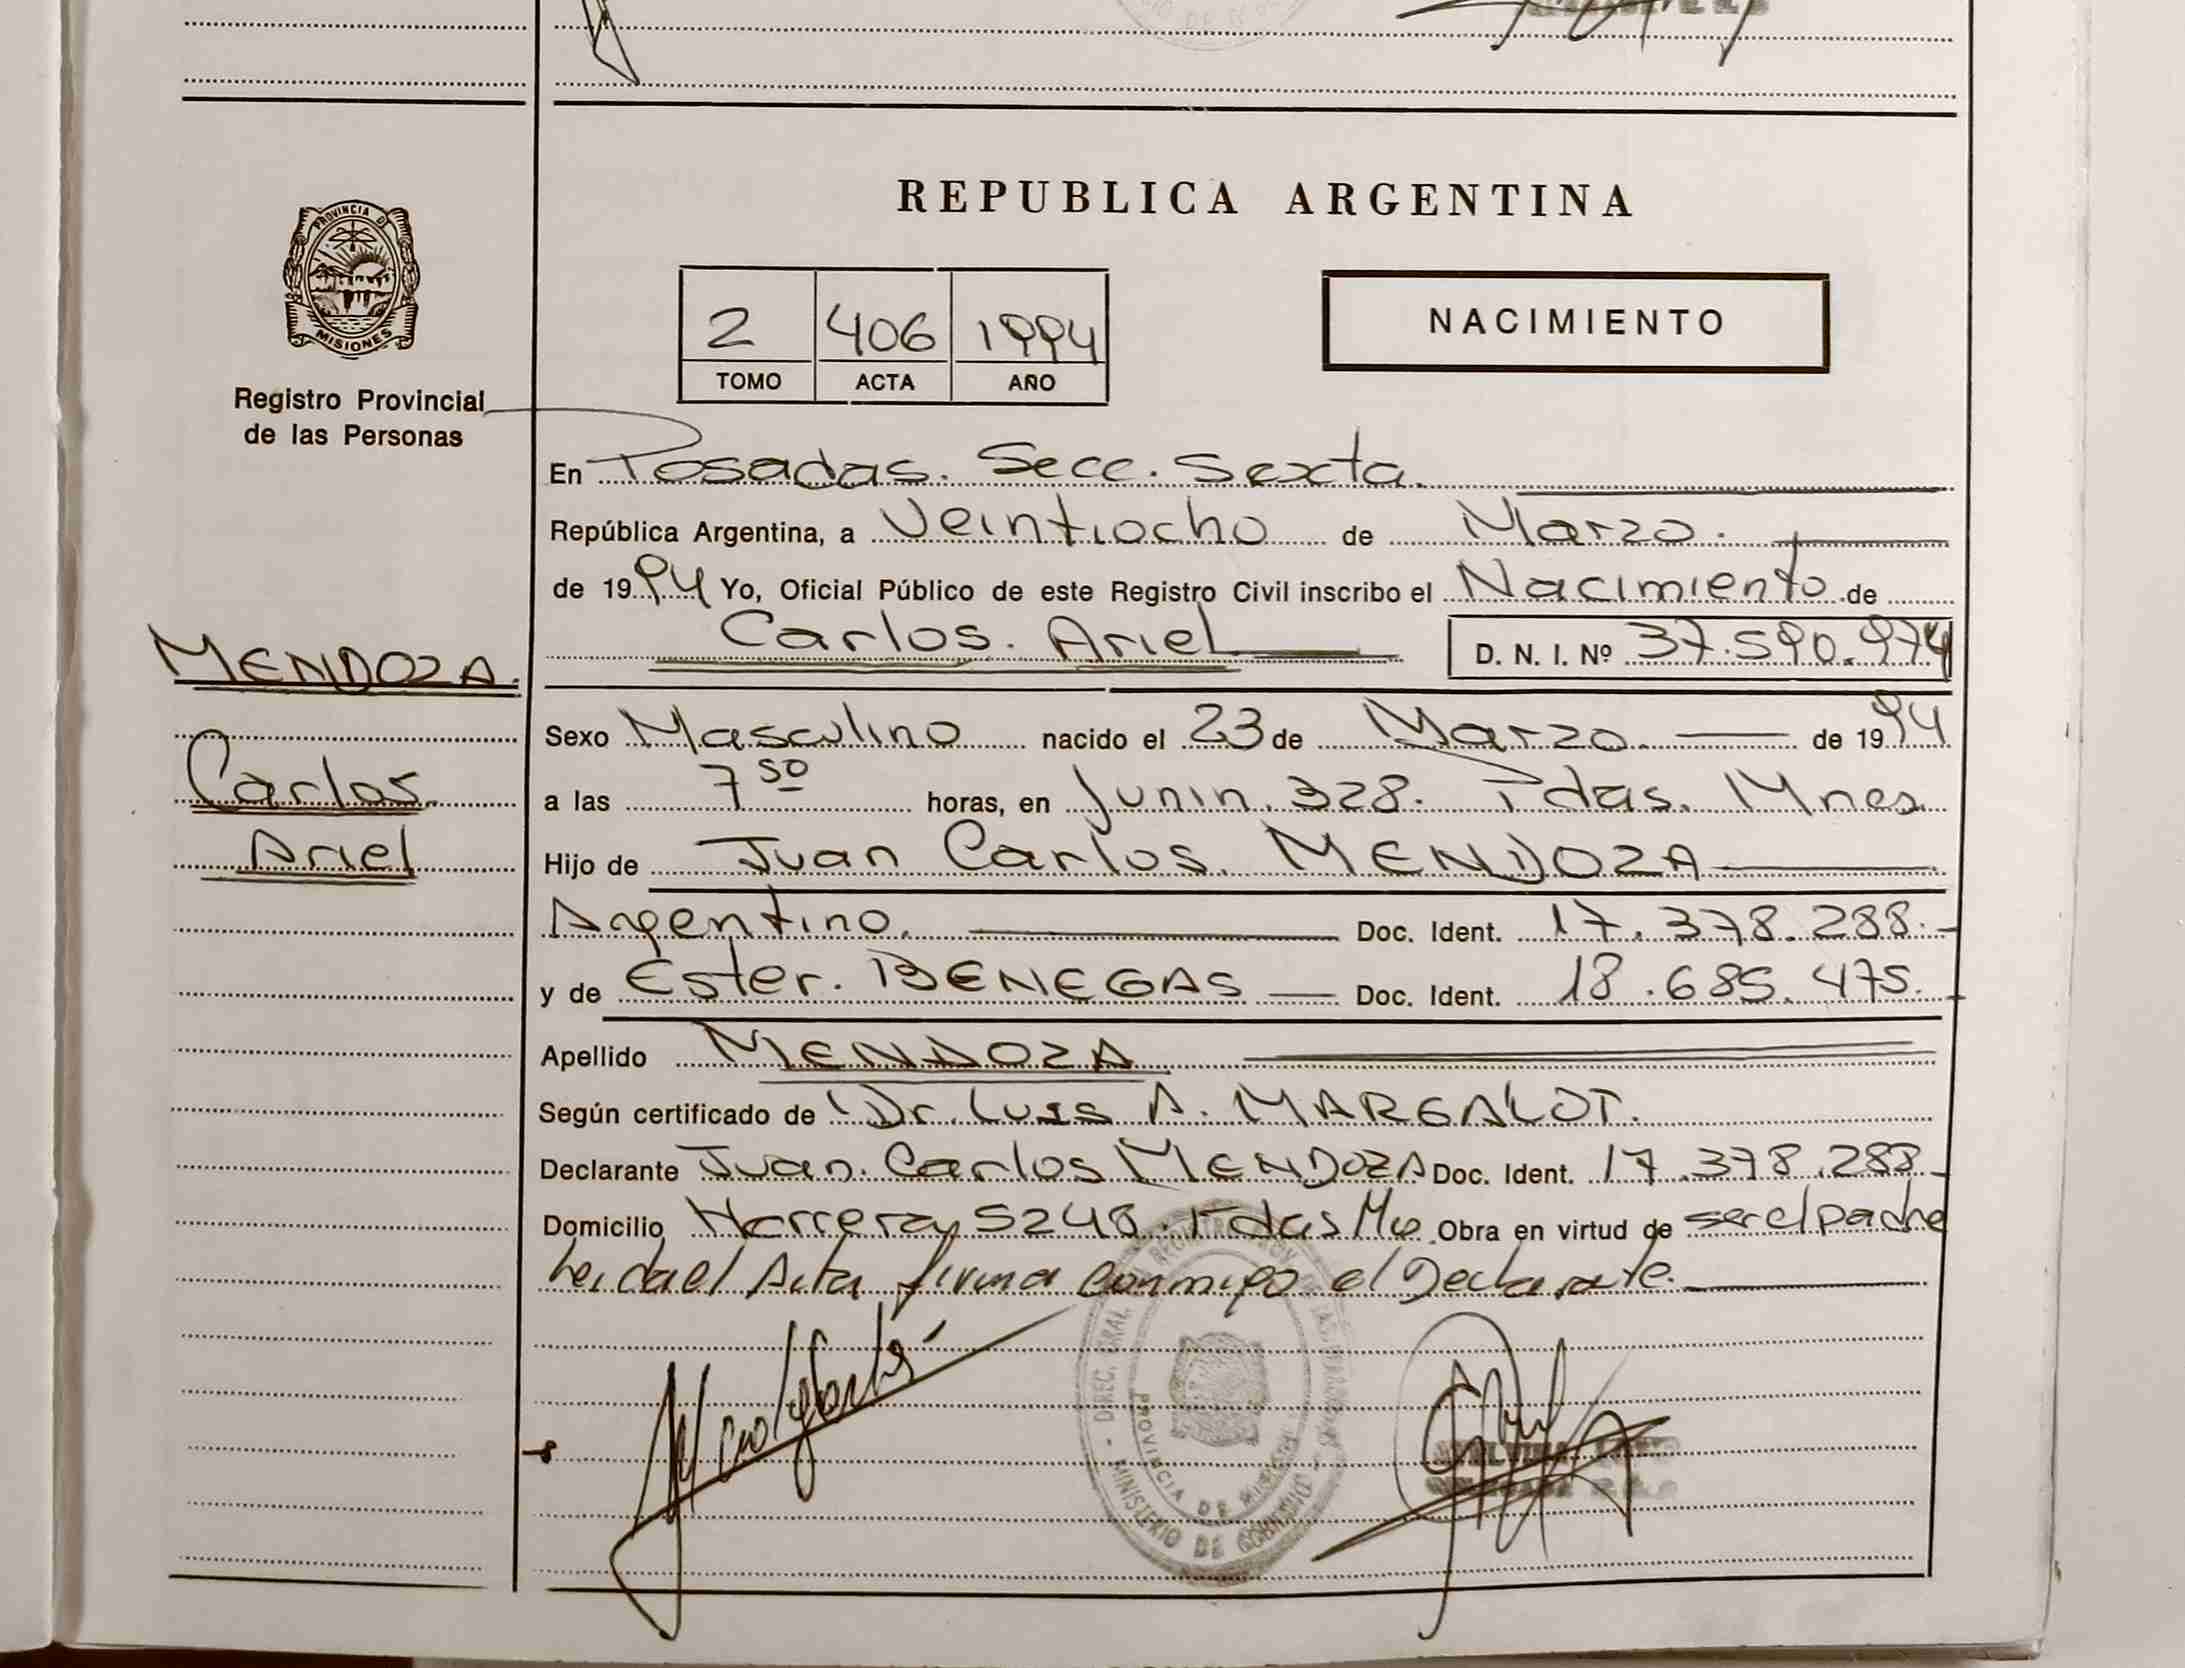 PROVINCIA DE
MISIONES
Registro Provincial
de las Personas
MENDOZA.
Carlos
Ariel
REPUBLICA ARGENTINA
2 406 1994
TOMO ACTA AÑO
NACIMIENTO
En Posadas. Secc. Sexta.
República Argentina, a Veintiocho de Marzo.
de 1994 Yo, Oficial Público de este Registro Civil inscribo el Nacimiento de
Carlos. Ariel D. N. I. Nº 37.590.974
Sexo Masculino nacido el 23 de Marzo. de 1994
a las 7 50 horas, en Junin. 328. Pdas. Mnes.
Hijo de Juan Carlos. MENDOZA
Argentino. Doc. Ident. 17.378.288.-
y de Ester. BENEGAS Doc. Ident. 18.685.475.
Apellido MENDOZA
Según certificado de Dr. Luis A. MARGALOT.
Declarante Juan. Carlos MENDOZA Doc. Ident. 17.378.288-
Domicilio Herrera 5248. Pdas Obra en virtud de ser el padre
Leida el Acta firma conmigo el Declarate.
DIREC. GRAL. PROVINCIA DE MISIONES
MINISTERIO DE GOBIERNO